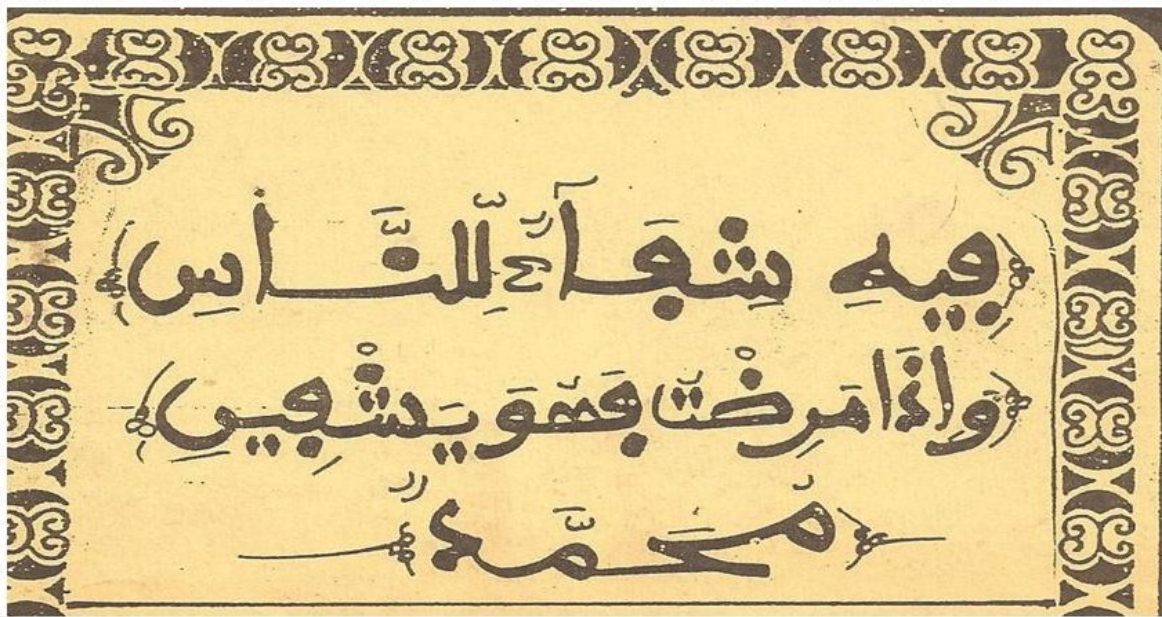 فِيهِ شِفَآءٌ لِّلنَّاسِ
وَإِذَا مَرِضْتُ فَهُوَ يَشْفِينِ
مُحَمَّدٌ